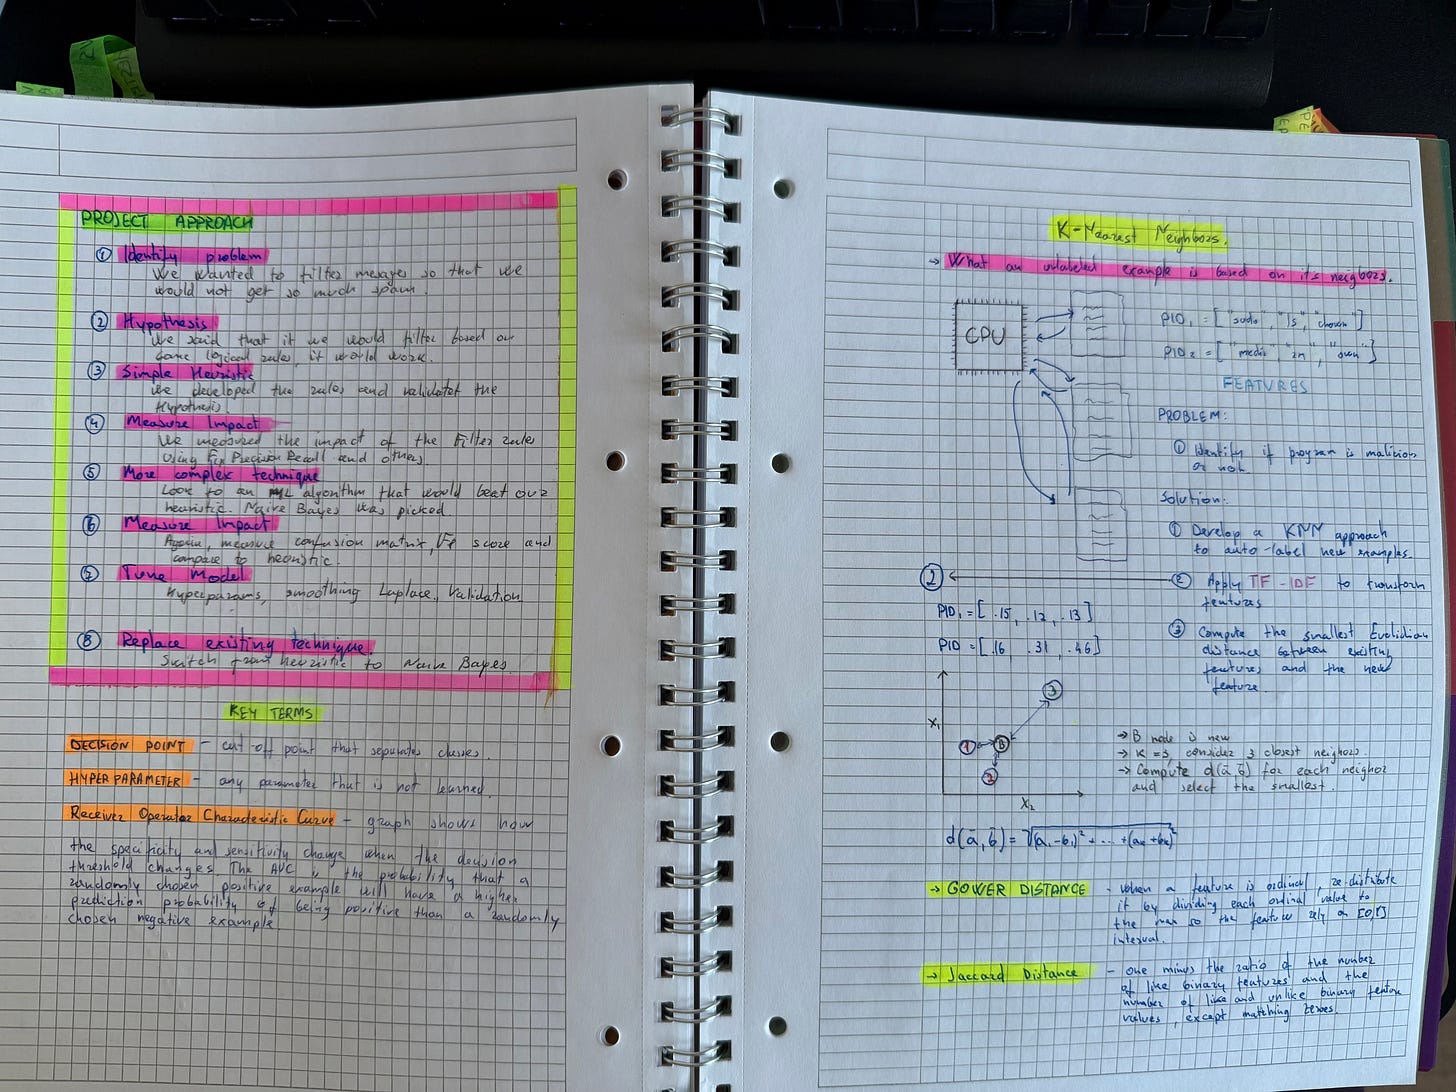 PROJECT APPROACH
① Identify problem
We wanted to filter messages so that we
would not get so much spam.
② Hypothesis
We said that if we would filter based on
some logical rules, it would work.
③ Simple Heuristic
We developed the rules and validatet the
Hypothesis.
④ Measure Impact
We measured the impact of the Filter rules
using F1, Precision Recall and others.
⑤ More complex technique
Look to an ML algorithm that would beat our
heuristic. Naive Bayes was picked.
⑥ Measure Impact
Again, measure confusion matrix, F1 score and
compare to heuristic.
⑦ Tune Model
Hyperparams, smoothing Laplace, Validation
⑧ Replace existing technique.
Switch from heuristic to Naive Bayes.
KEY TERMS
DECISION POINT - cut-off point that separates classes.
HYPERPARAMETER - any parameter that is not learned.
Receiver Operator Characteristic Curve - graph shows how
the specificity and sensitivity change when the decision
threshold changes. The AUC is the probability that a
randomly chosen positive example will have a higher
prediction probability of being positive than a randomly
chosen negative example
K-Nearest Neighbors.
→ What an unlabeled example is based on its neighbors.
CPU
PID1 = ["sudo", "ls", "chown"]
PID2 = ["media", "rm", "own"]
FEATURES
PROBLEM:
① Identify if program is malicios
or not.
Solution:
① Develop a KNN approach
to auto-label new examples.
② Apply TF-IDF to transform
features
③ Compute the smallest Euclidian
distance between existing
features and the new
feature.
②
PID1 = [.15, .12, .13]
PID = [.16 .31, .46]
X1
3
1
B
2
X2
→ B node is new
→ K=3, consider 3 closest neighors.
→ Compute d(a̅ b̅) for each neighor
and select the smallest.
d(a̅,b̅) = √(a1-b1)² + ... + (ak+bk)²
→ GOWER DISTANCE - when a feature is ordinal, re-distribute
it by dividing each ordinal value to
the max so the feature rely on [0,1]
interval.
→ Jaccard Distance - one minus the ratio of the number
of like binary features and the
number of like and unlike binary feature
values, except matching zeroes.